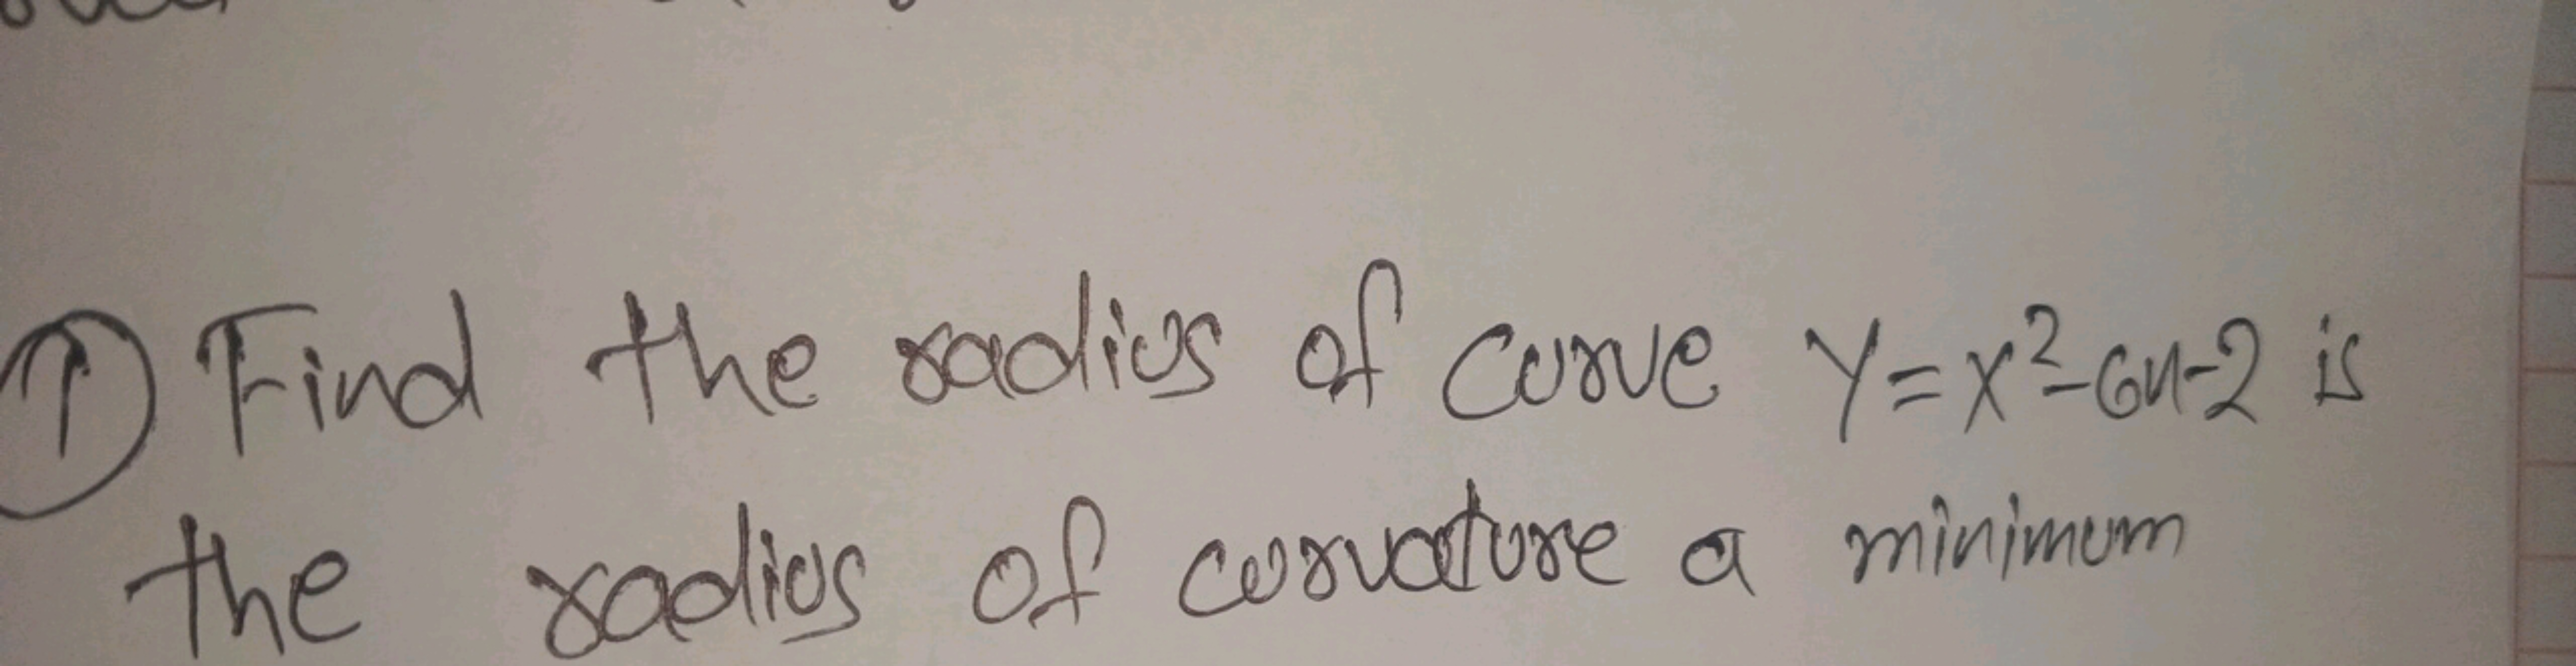 ① Find the radius of curve y=x²-6x-2 is
the radius of curvature a minimum